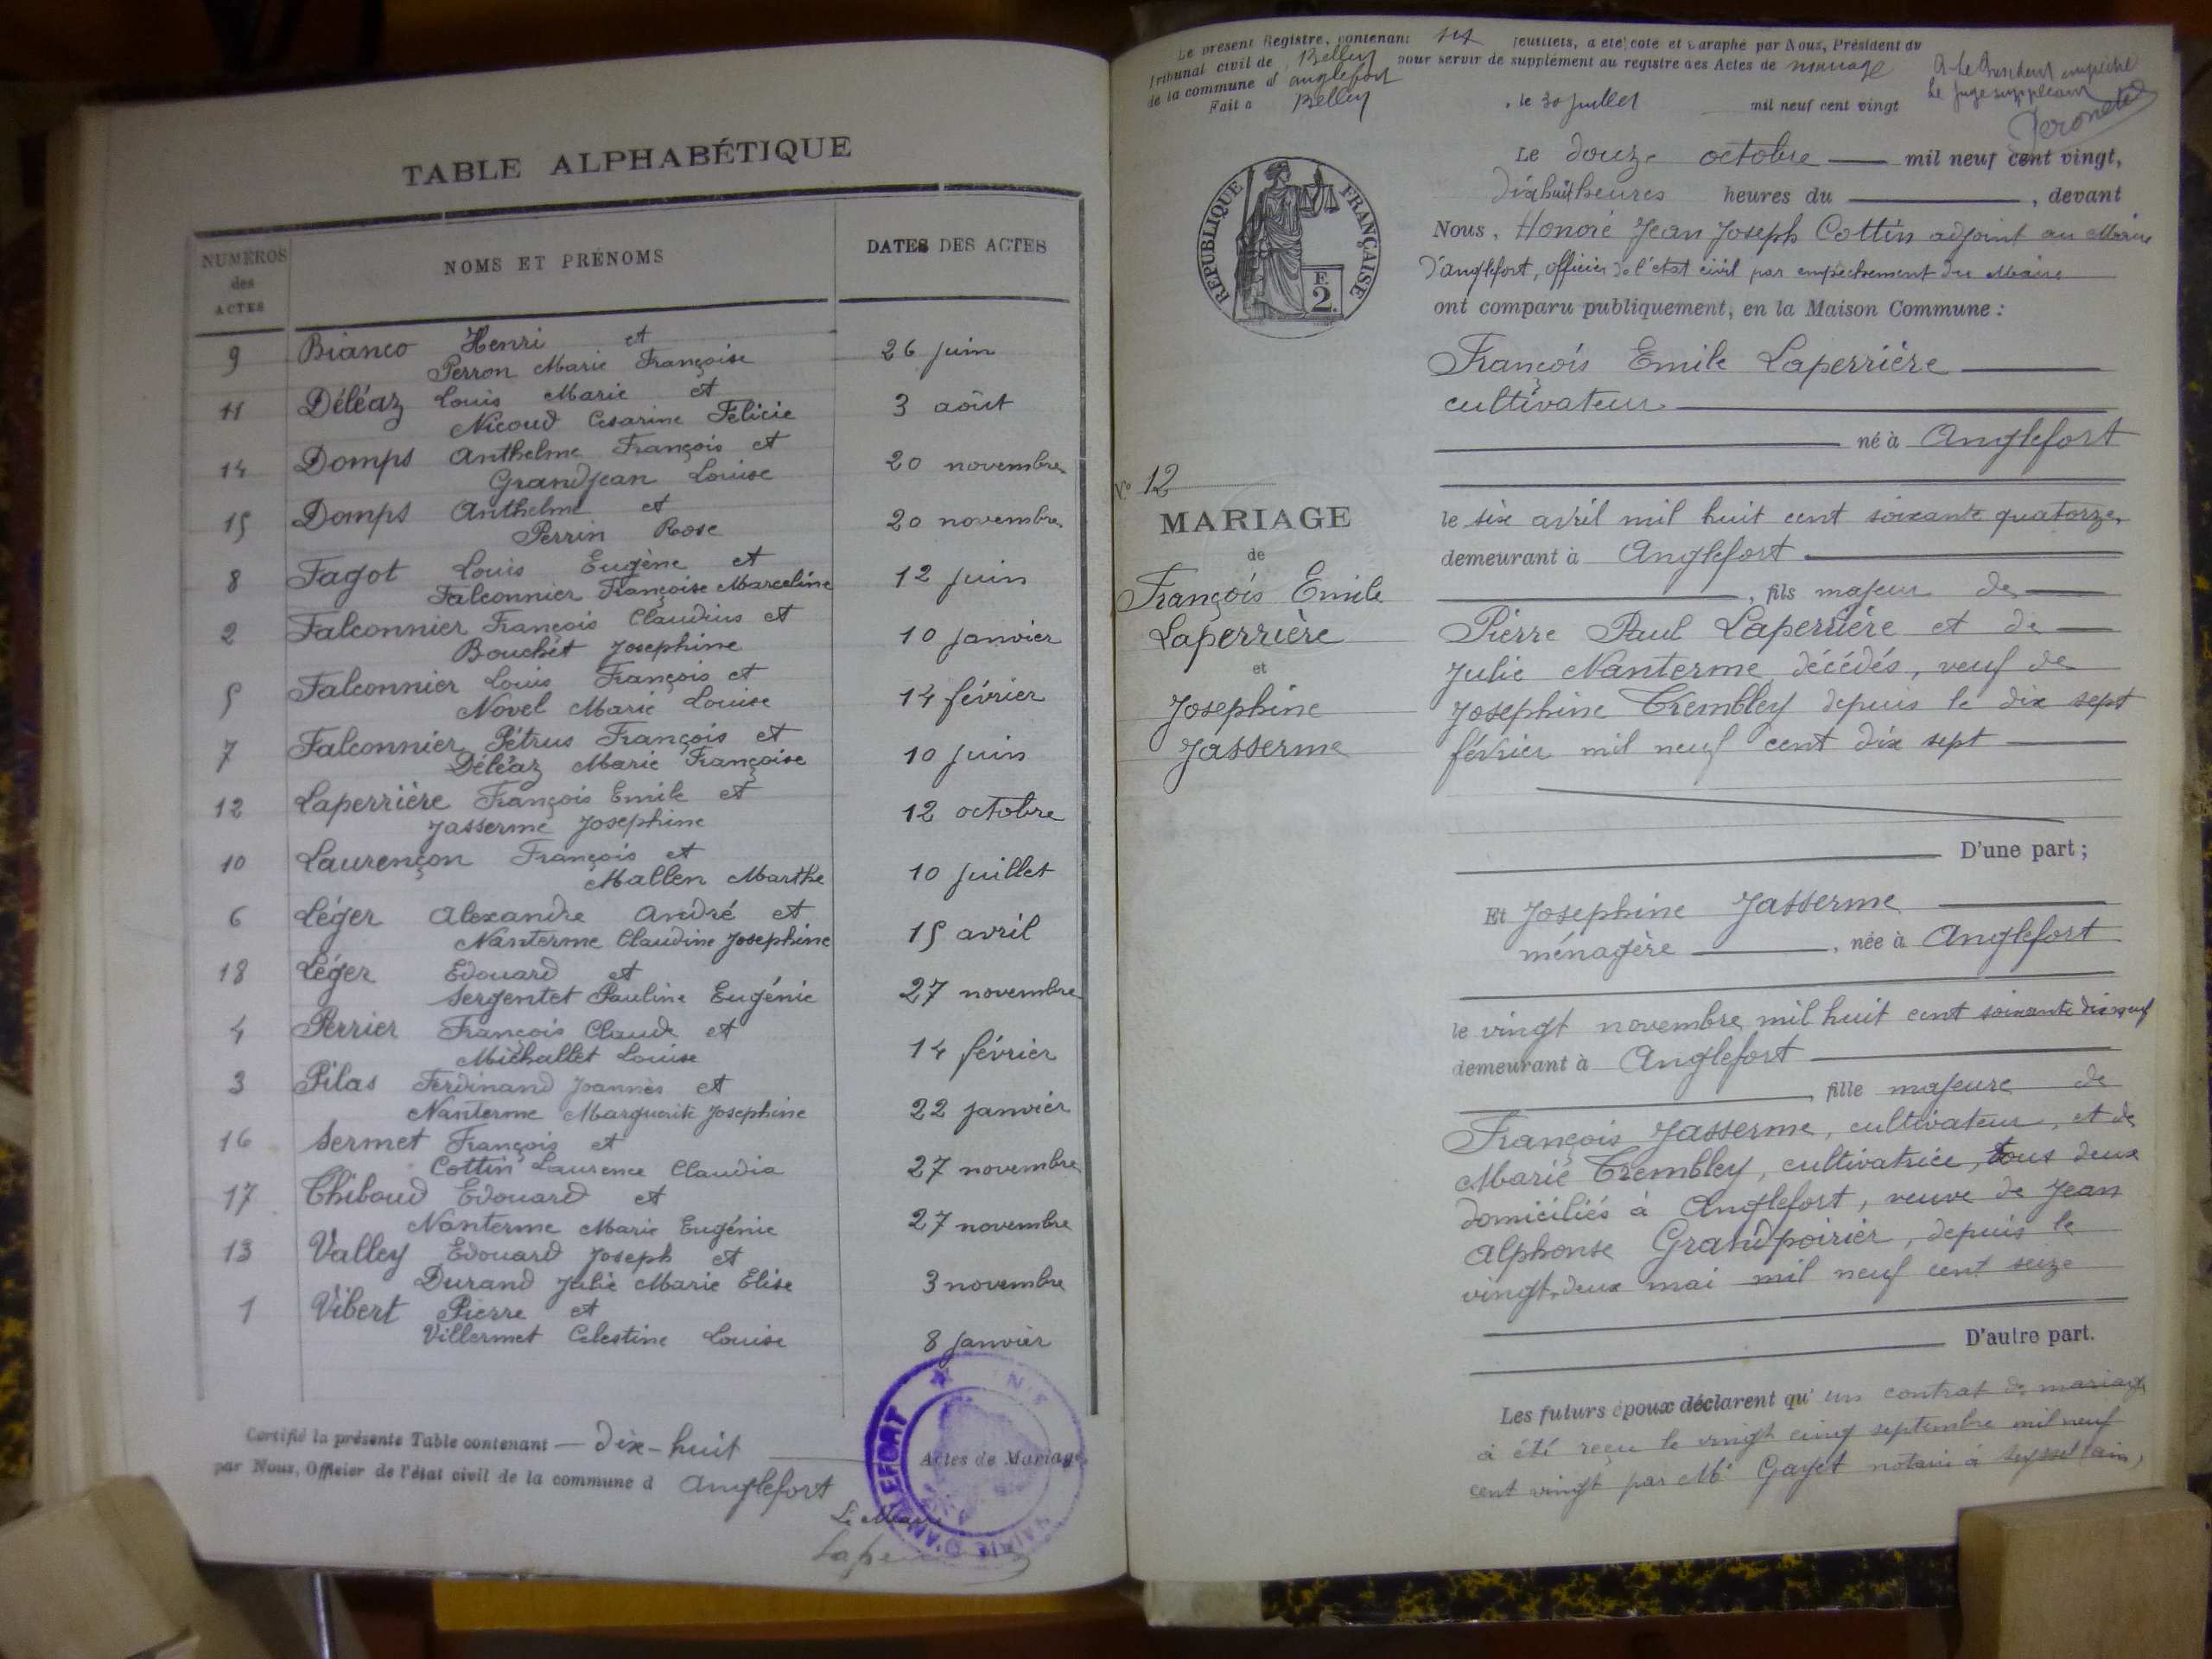 TABLE ALPHABÉTIQUE
NUMÉROS
des
ACTES
NOMS ET PRÉNOMS
DATES DES ACTES
9 Bianco Henri et
Perron Marie Françoise 26 juin
11 Déléaz Louis Marie et
Nicoud Césarine Félicie 3 août
14 Domps Anthelme François et
Grandjean Louise 20 novembre
15 Domps Anthelme et
Perrin Rose 20 novembre
8 Fagot Louis Eugène et
Falconnier Françoise Marceline 12 juin
2 Falconnier François Claudius et
Bouchet Josephine 10 janvier
5 Falconnier Louis François et
Novel Marie Louise 14 février
7 Falconnier Pétrus François et
Déléaz Marie Françoise 10 juin
12 Laperrière François Emile et
Jasserme Josephine 12 octobre
10 Laurençon François et
Mallen Marthe 10 juillet
6 Léger Alexandre André et
Nanterme Claudine Josephine 15 avril
18 Léger Edouard et
Sergentet Pauline Eugénie 27 novembre
4 Perrier François Claude et
Michallet Louise 14 février
3 Pilas Ferdinand Joannès et
Nanterme Marguerite Josephine 22 janvier
16 Sermet François et
Cottin Laurence Claudia 27 novembre
17 Thiboud Edouard et
Nanterme Marie Eugénie 27 novembre
13 Valley Edouard Joseph et
Durand Julie Marie Elise 3 novembre
1 Vibert Pierre et
Villermet Celestine Louise 8 janvier
Certifié la présente Table contenant dix-huit Actes de Mariage
par Nous, Officier de l'état civil de la commune d Anglefort
Le Maire
MAIRIE D'ANGLEFORT
Le présent Registre, contenant six feuillets, a été coté et paraphé par Nous, Président du
Tribunal civil de Belley pour servir de supplément au registre des Actes de mariage
de la commune d'anglefort
Fait a Belley, le 30 juillet mil neuf cent vingt
P. le Président empêché
Le juge suppléant
REPUBLIQUE FRANÇAISE
F.
2.
Le douze octobre mil neuf cent vingt,
dix huit heures heures du , devant
Nous, Honoré Jean Joseph Cottin adjoint au Maire
d'anglefort, officier de l'état civil par empêchement du Maire
ont comparu publiquement, en la Maison Commune :
François Emile Laperrière
cultivateur
né à Anglefort
No 12
MARIAGE
de
François Emile
Laperrière
et
Josephine
Jasserme
le six avril mil huit cent soixante quatorze
demeurant à Anglefort
, fils majeur de
Pierre Paul Laperrière et de
Julie Nanterme décédés, veuf de
Josephine Trembley depuis le dix sept
février mil neuf cent dix sept
D'une part ;
Et Josephine Jasserme
ménagère , née à Anglefort
le vingt novembre mil huit cent soixante dix neuf
demeurant à Anglefort
, fille majeure de
François Jasserme, cultivateur, et de
Marie Trembley, cultivatrice, tous deux
domiciliés à Anglefort, veuve de Jean
Alphonse Grandpoirier, depuis le
vingt-deux mai mil neuf cent seize
D'autre part.
Les futurs époux déclarent qu'un contrat de mariage
a été reçu le vingt cinq septembre mil neuf
cent vingt par Me Gayet notaire à Seyssel (ain)